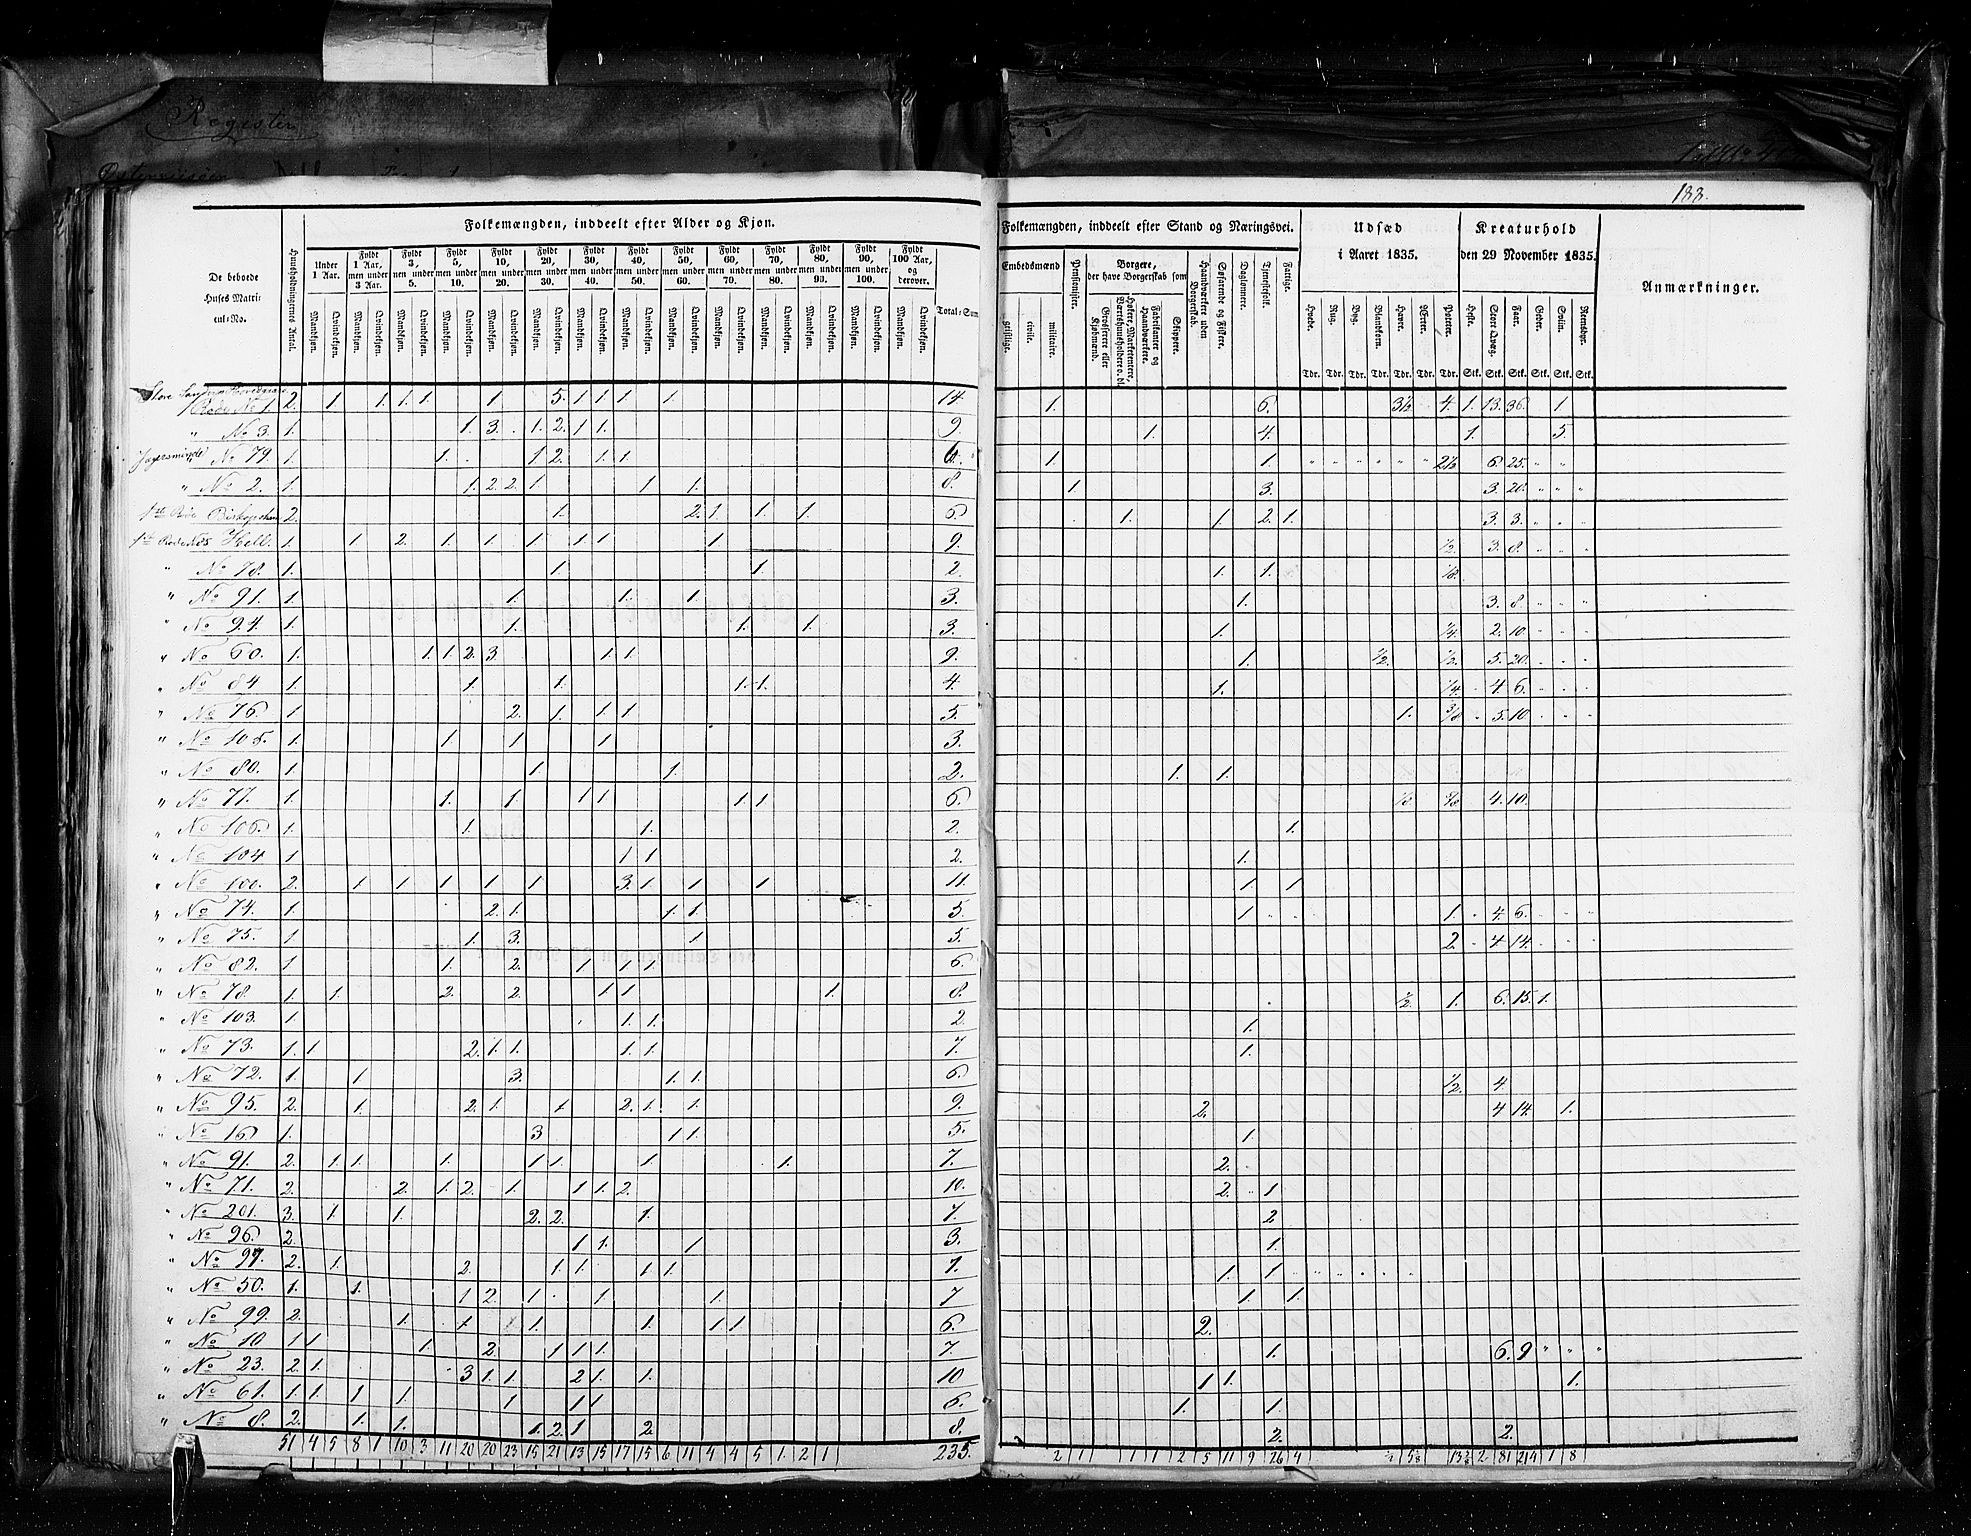 Register
188.
Folkemængden, inddeelt efter Alder og Kjøn.
Folkemængden, inddeelt efter Stand og Næringsvei.
Udsæd i Aaret 1835.
Kreaturhold den 29 November 1835.
Anmærkninger.
De beboede Huses Matricul-No.
Huusholdningernes Antal.
Under 1 Aar.
Fyldt 1 Aar, men under 3 Aar.
Fyldt 3, men under 5.
Fyldt 5, men under 10.
Fyldt 10, men under 20.
Fyldt 20, men under 30.
Fyldt 30, men under 40.
Fyldt 40, men under 50.
Fyldt 50, men under 60.
Fyldt 60, men under 70.
Fyldt 70, men under 80.
Fyldt 80, men under 90.
Fyldt 90, men under 100.
Fyldt 100 Aar, og derover.
Mandkjøn. Qvindekjøn.
Total-Sum
Embedsmænd
geistlige. civile. militaire.
Pensionister.
Borgere, der have Borgerskab som
Grosserere eller Kjøbmænd.
Fabrikanter og Haandværkere.
Skippere.
Haandværkere uden Borgerskab.
Søfarende og Fiskere.
Daglønnere.
Tjenestefolk.
Fattige.
Hvede. Rug. Byg. Blandkorn. Havre. Erter. Poteter.
Tdr. Tdr. Tdr. Tdr. Tdr. Tdr. Tdr.
Heste. Stort Qvæg. Faar. Geder. Sviin. Reensdyr.
Stk. Stk. Stk. Stk. Stk. Stk.
Rode No 1. 2. 1 1. 1. 1. 1 5. 1 1 1 1 14 1. 6. 3½ 4. 1. 13. 36. 1
" No 3. 1. 1. 3. 1. 2. 1 1 9. 1. 4. 1. 5.
No 79. 1. 1. 1 2. 1 1. 6. 1. 1. 2½ 6. 25.
" No 2. 1. 1. 2. 2. 1 1 1. 8. 1. 3. 3. 20.
2. 1. 2. 1. 1. 1. 6. 1. 1. 2. 1. 3. 3.
1. 1 2. 1. 1. 1. 1 1. 1. 9. ½ 3. 8.
" No 78. 1. 1. 1. 2. 1. 1. ⅛
" No 91. 1. 1. 1. 1. 3. 1. 3. 8.
" No 94. 1. 1. 1. 1. 3. 1. ¼ 2. 10.
" No 60. 1. 1. 1. 2. 3. 1. 1. 9. 1. ½ ½ 5. 20.
" No 84 1. 1. 1. 1. 1. 4. 1. ¼ 4. 6.
" No 76. 1. 2. 1. 1. 1. 5. 1. ⅜ 5. 10.
" No 105. 1. 1. 1. 1. 3.
" No 80. 1. 1. 1. 2. 1. 1.
" No 77. 1. 1. 1. 1 1. 1. 1. 6. 4. 10.
" No 106. 1. 1. 1. 2. 1.
" No 104 1. 1 1. 2. 1.
" No 100. 2. 1 1. 1 1 1 3. 1. 1 1 11. 1. 1
" No 74. 1. 2. 1. 1. 1. 5. 1. 1. 4. 6.
" No 75. 1 1. 3. 1. 5. 2. 4 14.
" No 82. 1 1. 2. 1 1 1. 6.
" No 78. 1. 1. 2. 2. 1 1 1. 8. ½ 1. 6. 15. 1.
" No 103. 1. 1. 1. 2. 1.
" No 73. 1. 1 2. 1. 1. 1. 1. 7. 1.
" No 72. 1. 1 3. 1. 1. 6. ½ 4
" No 95. 2. 1. 2. 1. 1 2. 1. 1. 9. 2. 4 14. 1.
" No 16 1. 3 1 1. 5. 1.
" No 91. 2. 1. 1. 1. 1 1. 1. 1. 7. 2.
" No 71. 2. 2. 1. 2. 1. 1 1. 2. 10. 2. 1
" No 201. 3. 1. 1. 2. 2. 1. 7. 2
" No 96. 2. 1 1. 1 3. 1.
" No 97. 2. 1. 2. 1 1. 1 1. 7. 1. 1
" No 50. 1. 1. 1 2. 1. 1. 1. 7 1. 1
" No 99. 2. 1. 1 1. 1. 1 1 6. 2.
" No 10 1 1 1. 2. 1 1 1. 7. 1. 6. 9
" No 23. 2. 1. 3 1. 1 2 1. 1. 10 1 1. 1.
" No 61. 1. 1. 1 1. 1 1 1 6. 1. 1.
" No 8. 2. 1. 1. 1. 2. 1 2. 8. 2. 2.
51 4 5 8 1 10 3 11 20 20 23 15 21 13 15 17 15 6 11 4 4 5 1. 2 1 235. 2 1 1 1 2 5 11 9 26 4 ½ 2 81 214 1 8